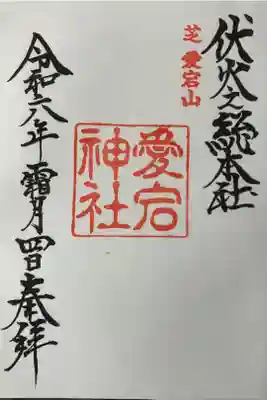 伏火之総本社
芝 愛宕山
愛宕神社
令和六年霜月四日奉拝